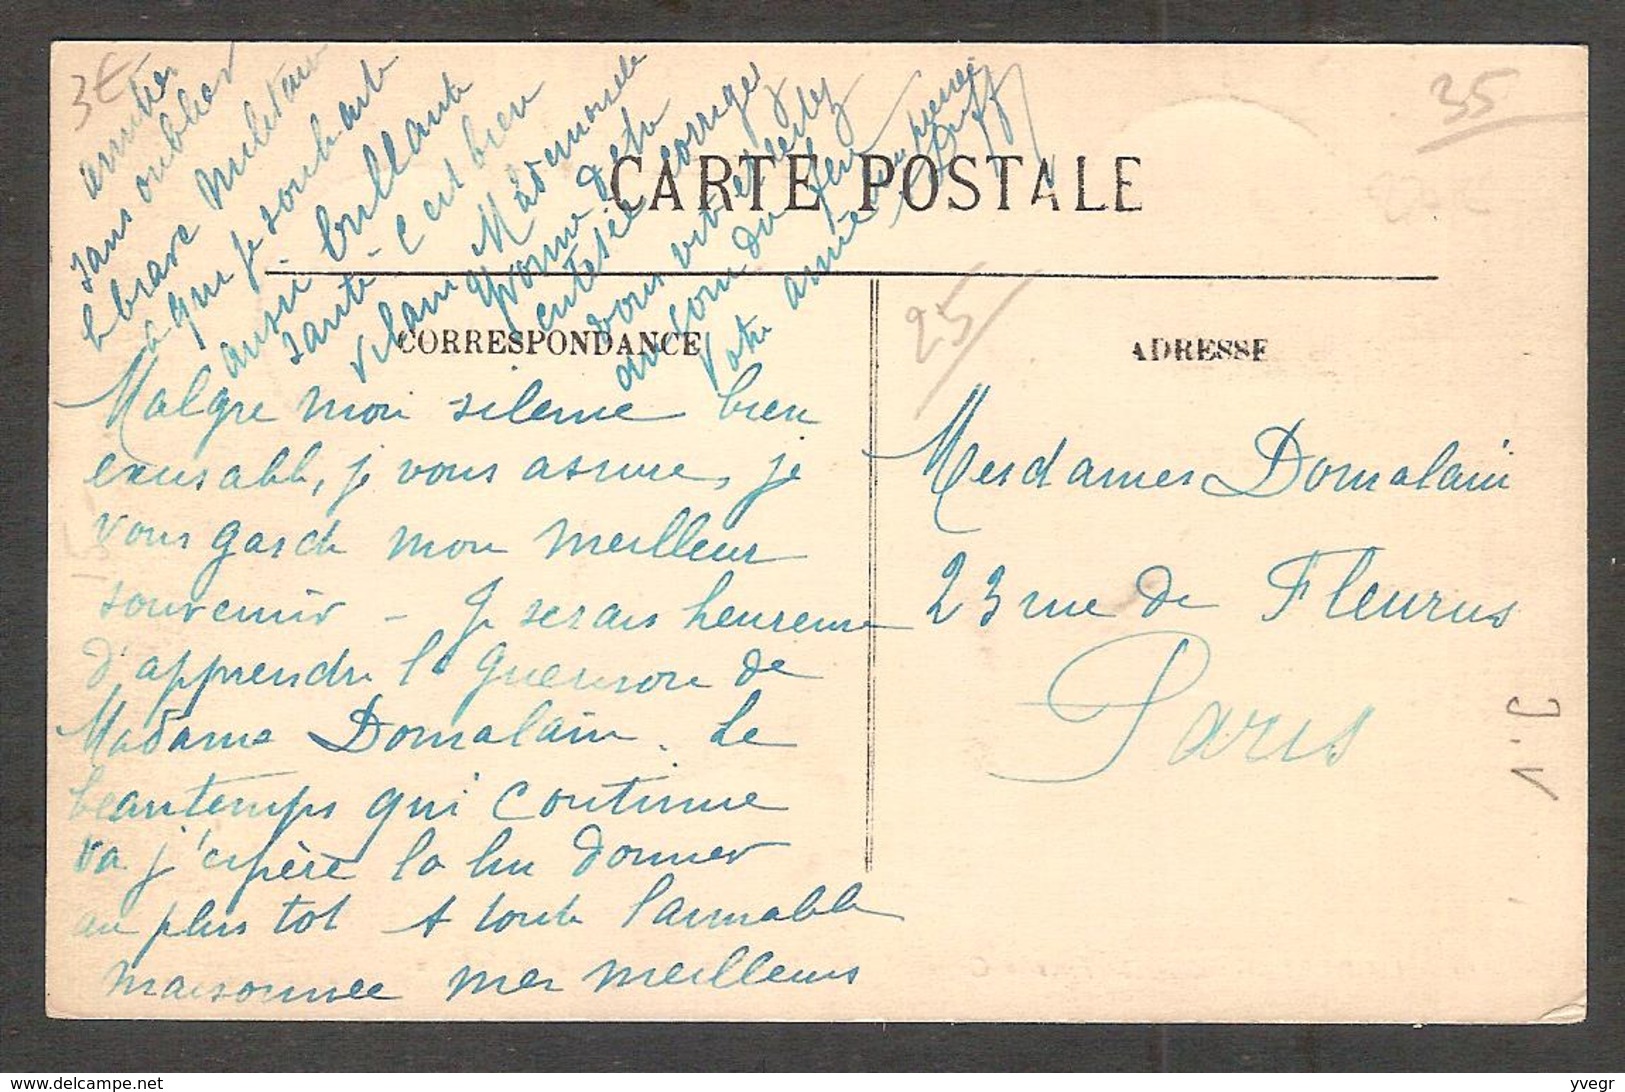 CARTE POSTALE
CORRESPONDANCE
ADRESSE
Malgré mon silence bien
excusable, je vous assure, je
vous garde mon meilleur
souvenir - Je serais heureuse
d'apprendre la guérison de
Madame Domalain. Le
beau temps qui continue
va j'espère la lui donner
au plus tot A toute l'aimable
maisonnée mes meilleures
amitiés
sans oublier
le brave militaire
à qui je souhait
aussi brillante
santé - C'est bien
vilain Mademoiselle
Yvonne d'être
entêtée corrigez
vous vite et restez
au coin du feu
Votre amie
Mesdames Domalain
23 rue de Fleurus
Paris
3€
35
25
delcampe.net
yvegr